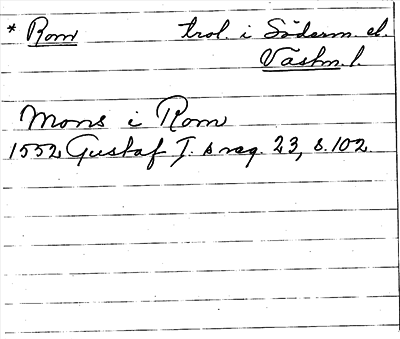 * Rom trol. i Söderm. el.
Västm. l.
Mons i Rom
1552 Gustaf I:s reg. 23, s. 102